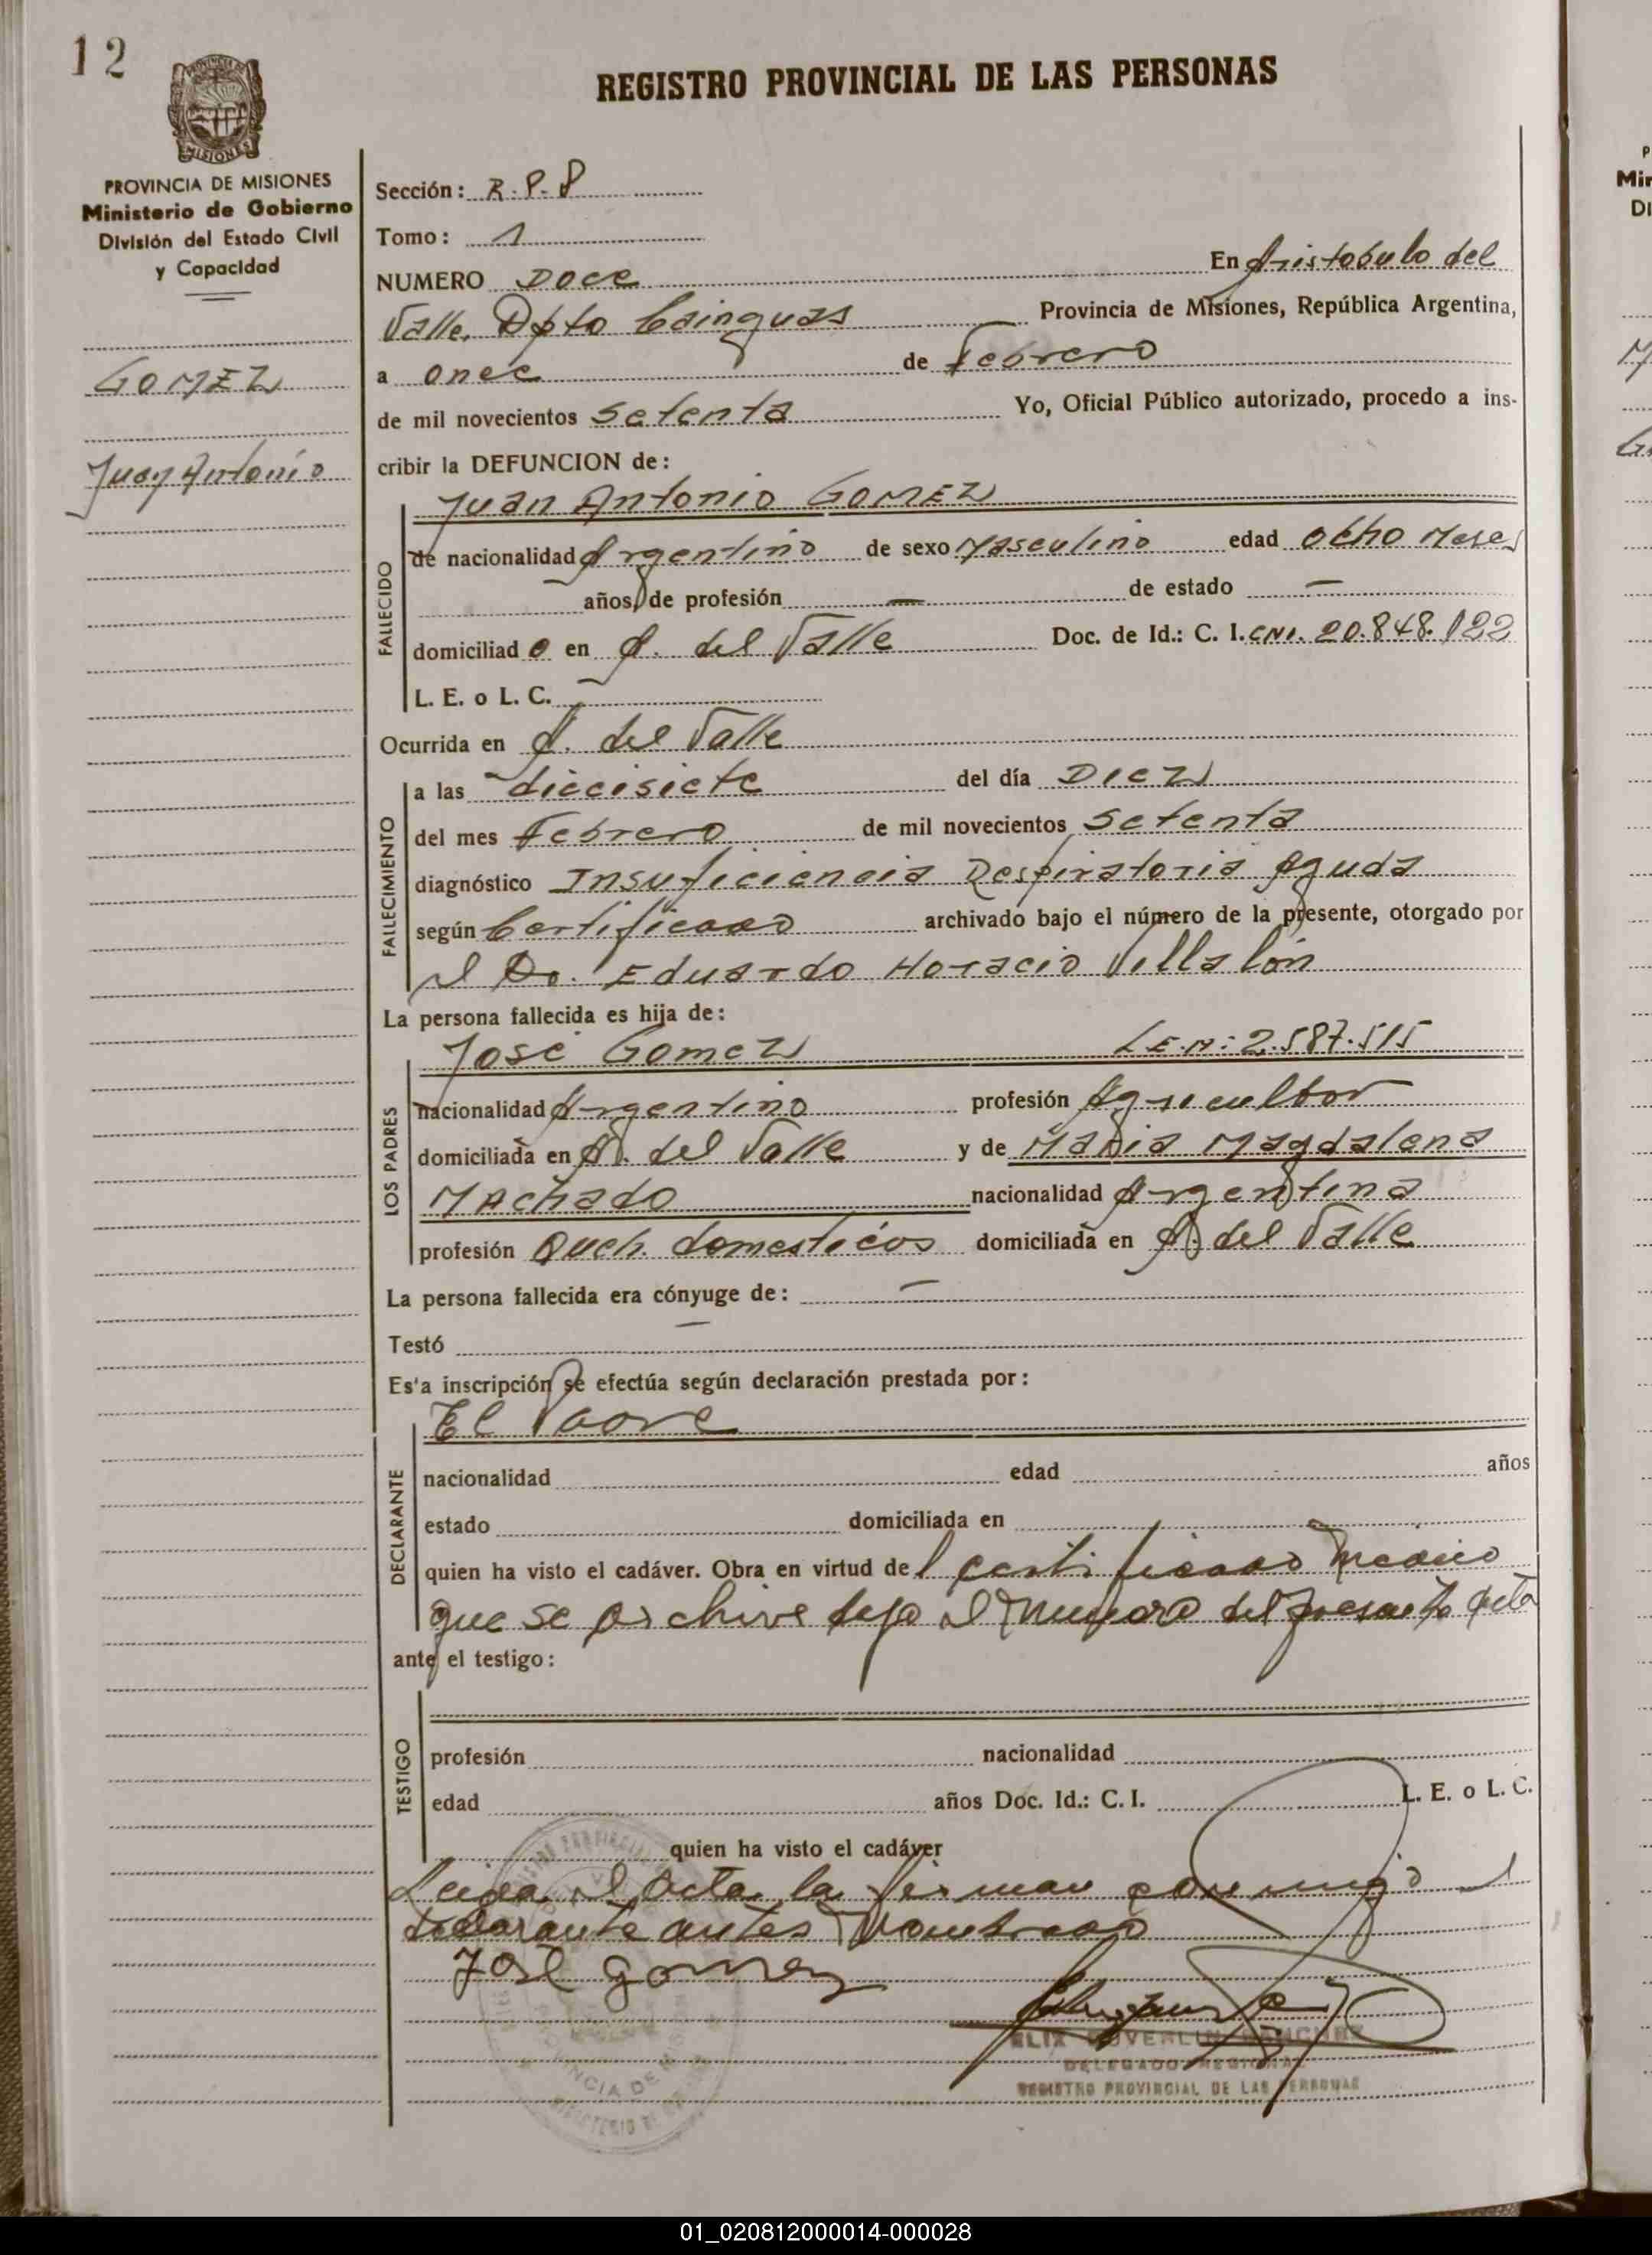 12
REGISTRO PROVINCIAL DE LAS PERSONAS
MISIONES
PROVINCIA DE MISIONES
Ministerio de Gobierno
División del Estado Civil
y Capacidad
GOMEZ
Juan Antonio
Sección: R.P.P
Tomo: 1
NUMERO Doce En Aristobulo del
Valle, Dpto Cainguas Provincia de Misiones, República Argentina,
a once de Febrero
de mil novecientos Setenta Yo, Oficial Público autorizado, procedo a ins-
cribir la DEFUNCION de:
Juan Antonio GOMEZ
FALLECIDO
de nacionalidad Argentino de sexo Masculino edad Ocho Meses
años, de profesión — de estado —
domiciliad o en A. del Valle Doc. de Id.: C. I. CNI. 20.848.122
L. E. o L. C. —
Ocurrida en A. del Valle
FALLECIMIENTO
a las diecisiete del día Diez
del mes Febrero de mil novecientos Setenta
diagnóstico Insuficiencia Respiratoria Aguda
según Certificado archivado bajo el número de la presente, otorgado por
el Dr. Eduardo Horacio Villalón
La persona fallecida es hija de:
LOS PADRES
José Gomez L.E.N: 2.587.515
nacionalidad Argentino profesión Agricultor
domiciliada en A. del Valle y de Maria Magdalena
Machado nacionalidad Argentina
profesión Queh. domesticos domiciliada en A. del Valle
La persona fallecida era cónyuge de: —
Testó —
Es'a inscripción se efectúa según declaración prestada por:
DECLARANTE
El Padre
nacionalidad edad años
estado domiciliada en
quien ha visto el cadáver. Obra en virtud del certificado medico
que se archiva bajo el numero del presente acta
ante el testigo:
TESTIGO
profesión nacionalidad
edad años Doc. Id.: C. I. L. E. o L. C.
quien ha visto el cadáver
Leida el acta la firman conmigo el
declarante antes nombrado
José gomez
DELEGADO REGIONAL
REGISTRO PROVINCIAL DE LAS PERSONAS
01_020812000014-000028